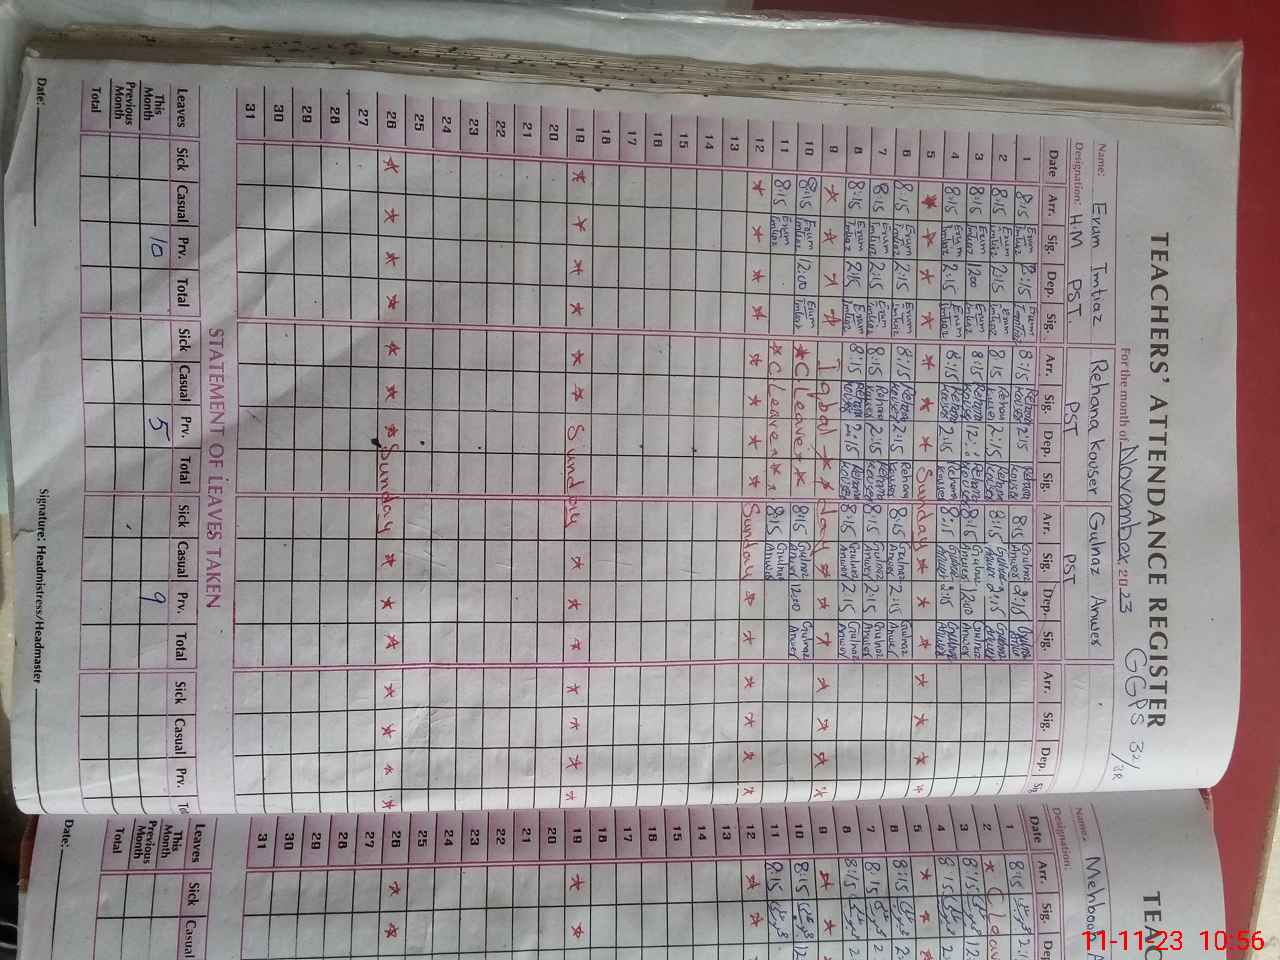 TEACHERS' ATTENDANCE REGISTER
GGPS 32/2R
For the month of November 2023
Name: Erum Imtiaz Rehana Kouser Gulnaz Anwer
Designation: HM PST. PST PST
Date Arr. Sig. Dep. Sig. Arr. Sig. Dep. Sig. Arr. Sig. Dep. Sig. Arr. Sig. Dep. Sig.
1 8:15 Erum Imtiaz 2:15 Erum Imtiaz 8:15 Rehana Kouser 2:15 Rehana Kouser 8:15 Gulnaz Anwer 2:15 Gulnaz Anwer
2 8:15 Erum Imtiaz 2:15 Erum Imtiaz 8:15 Rehana Kouser 2:15 Rehana Kouser 8:15 Gulnaz Anwer 2:15 Gulnaz Anwer
3 8:15 Erum Imtiaz 1200 Erum Imtiaz 8:15 Rehana Kouser 12: Rehana Kouser 8:15 Gulnaz Anwer 1200 Gulnaz Anwer
4 8:15 Erum Imtiaz 2:15 Erum Imtiaz 8:15 Rehana Kouser 2:15 Rehana Kouser 8:15 Gulnaz Anwer 2:15 Gulnaz Anwer
5 Sunday
6 8:15 Erum Imtiaz 2:15 Erum Imtiaz 8:15 Rehana Kouser 2:15 Rehana Kouser 8:15 Gulnaz Anwer 2:15 Gulnaz Anwer
7 8:15 Erum Imtiaz 2:15 Erum Imtiaz 8:15 Rehana Kouser 2:15 Rehana Kouser 8:15 Gulnaz Anwer 2:15 Gulnaz Anwer
8 8:15 Erum Imtiaz 2:15 Erum Imtiaz 8:15 Rehana Kouser 2:15 Rehana Kouser 8:15 Gulnaz Anwer 2:15 Gulnaz Anwer
9 Iqbal day
10 8:15 Erum Imtiaz 12:00 Erum Imtiaz C Leave 8:15 Gulnaz Anwer 12:00 Gulnaz Anwer
11 8:15 Erum Imtiaz C Leave 8:15 Gulnaz Anwer
12 Sunday
13
14
15
16
17
18
19 Sunday
20
21
22
23
24
25
26 Sunday
27
28
29
30
31
STATEMENT OF LEAVES TAKEN
Leaves Sick Casual Prv. Total Sick Casual Prv. Total Sick Casual Prv. Total Sick Casual Prv.
This Month 10 5 9
Previous Month
Total
Date: Signature: Headmistress/Headmaster
TEAC
Name. Mehboob A
Designation:
Date Arr. Sig. Dep
1 8:15 2:1
2 C Leav
3 8:15 12:
4 8:15 2:
5
6 8:15 2:
7 8:15 2
8 8:15 2:
9
10 8:15 12
11 8:15
12
13
14
15
16
17
18
19
20
21
22
23
24
25
26
27
28
29
30
31
Leaves Sick Casual
This Month
Previous Month
Total
Date:
11-11-23 10:56